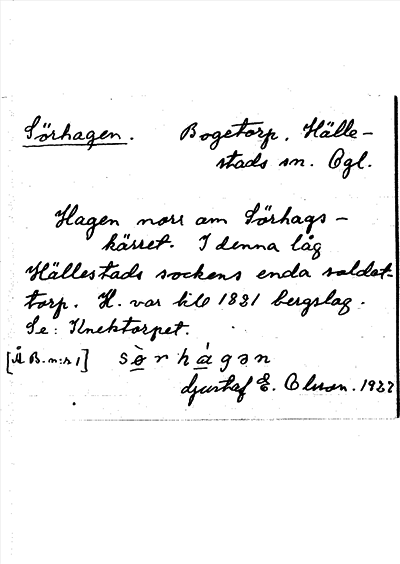 Sörhagen. Bogetorp, Hälle-
stads sn. Ögl.
Hagen norr om Sörhags-
kärret. I denna låg
Hällestads sockens enda soldat-
torp. H. var till 1881 bergslag.
Se: Knektorpet.
[Å B. n:r 1] sö̀rhágən
Gustaf E. Olsson. 1922